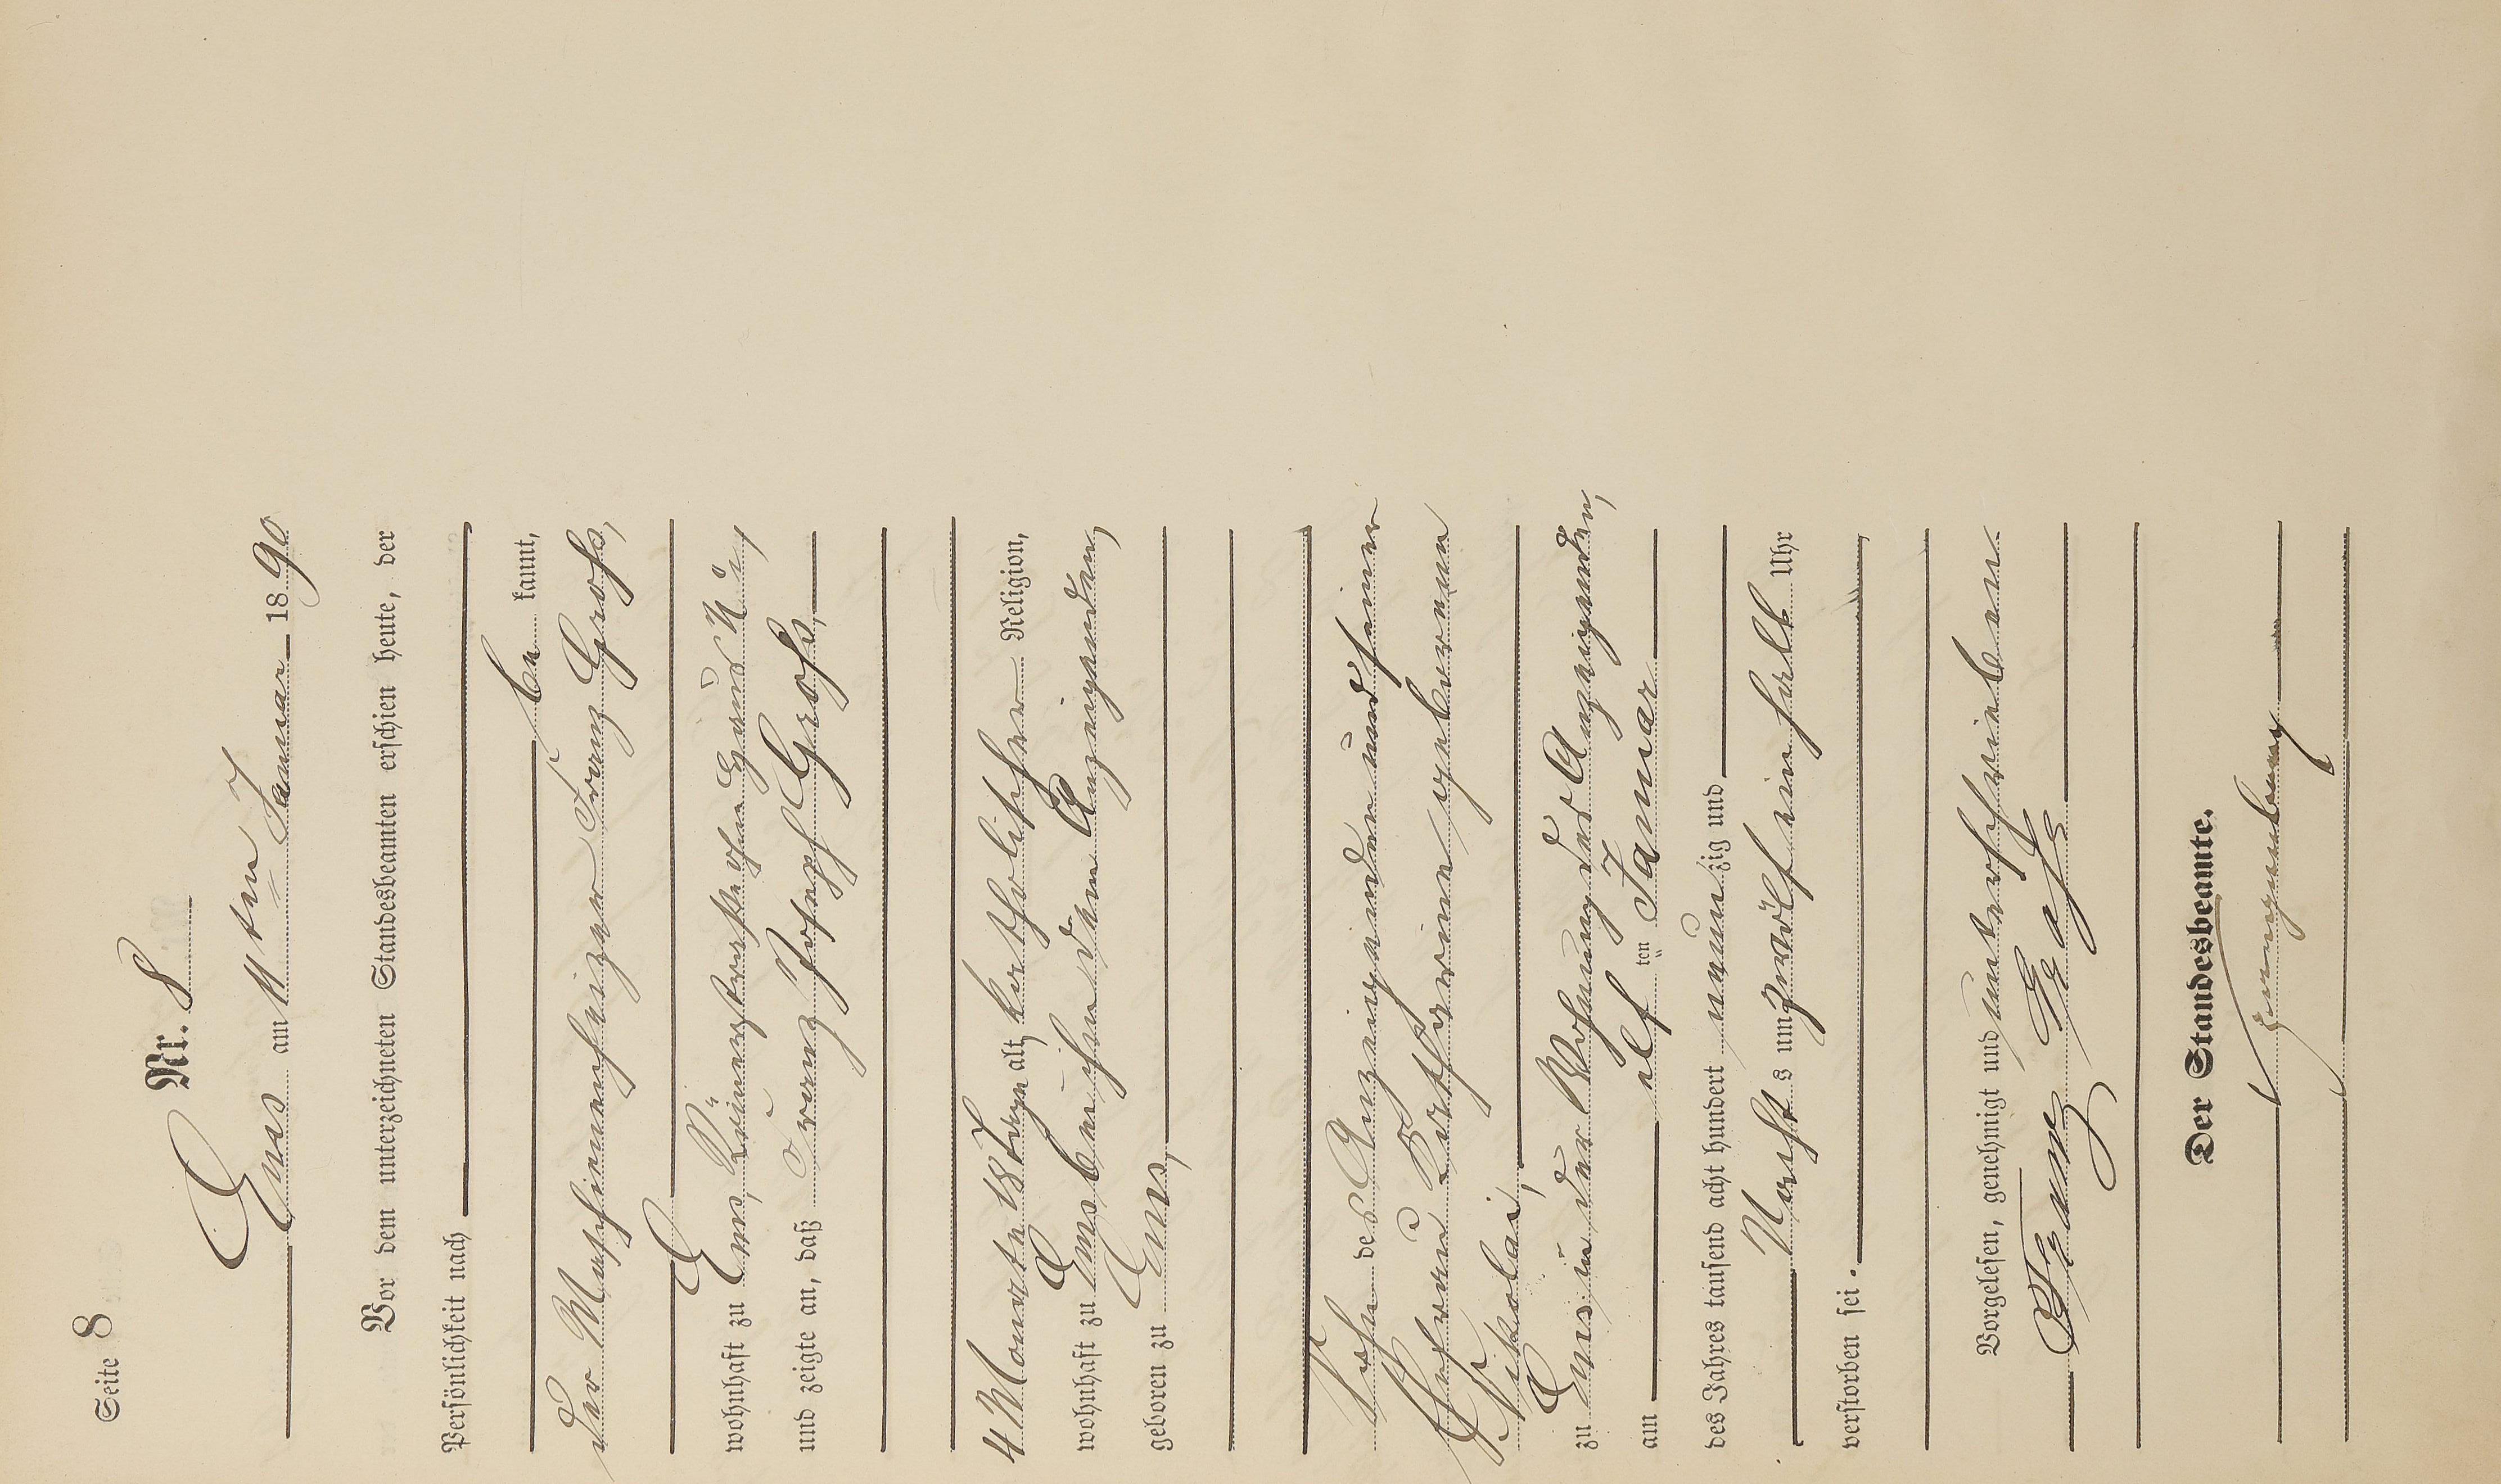 Seite 8
Nr. 8
Ems am 11ten Januar 1890
Vor dem unterzeichneten Standesbeamten erschien heute, der
Persönlichkeit nach
be kannt,
der Maschinenheizer Franz Groß,
wohnhaft zu Ems,
und zeigte an, daß Franz Joseph Groß,
4 Monate 18 Tage alt, katholischer Religion,
wohnhaft zu Ems bei ihm dem Anzeigenden,
geboren zu Ems,
Sohn des Anzeigenden und seiner
Ehefrau Katharine geborenen
Nikolai,
zu Ems in der Wohnung des Anzeigenden,
am elf ten Januar
des Jahres tausend acht hundert neunzig und
Nachts um zwölf ein halb Uhr
verstorben sei.
Vorgelesen, genehmigt und unterschrieben
Franz Groß
Der Standesbeamte.